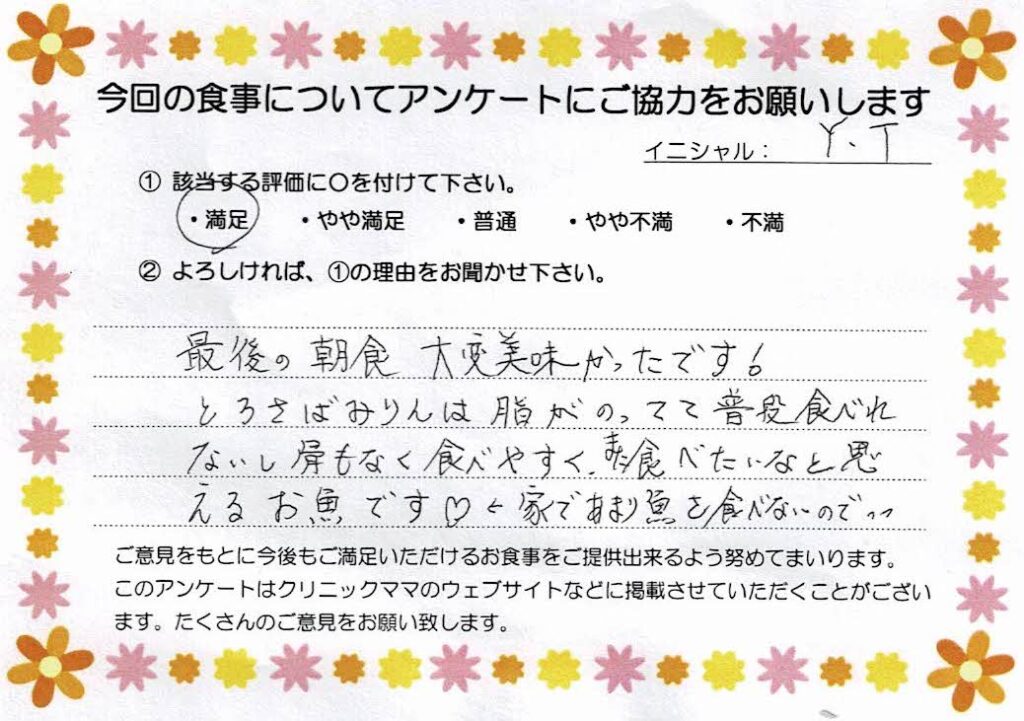 今回の食事についてアンケートにご協力をお願いします
イニシャル： Y.T
① 該当する評価に〇を付けて下さい。
・満足 ・やや満足 ・普通 ・やや不満 ・不満
② よろしければ、①の理由をお聞かせ下さい。
最後の朝食 大変美味かったです！
とろさばみりんは脂がのってて普段食べれ
ないし骨もなく食べやすく、また食べたいなと思
えるお魚です♡ ← 家であまり魚を食べないので〃
ご意見をもとに今後もご満足いただけるお食事をご提供出来るよう努めてまいります。
このアンケートはクリニックママのウェブサイトなどに掲載させていただくことがござい
ます。たくさんのご意見をお願い致します。